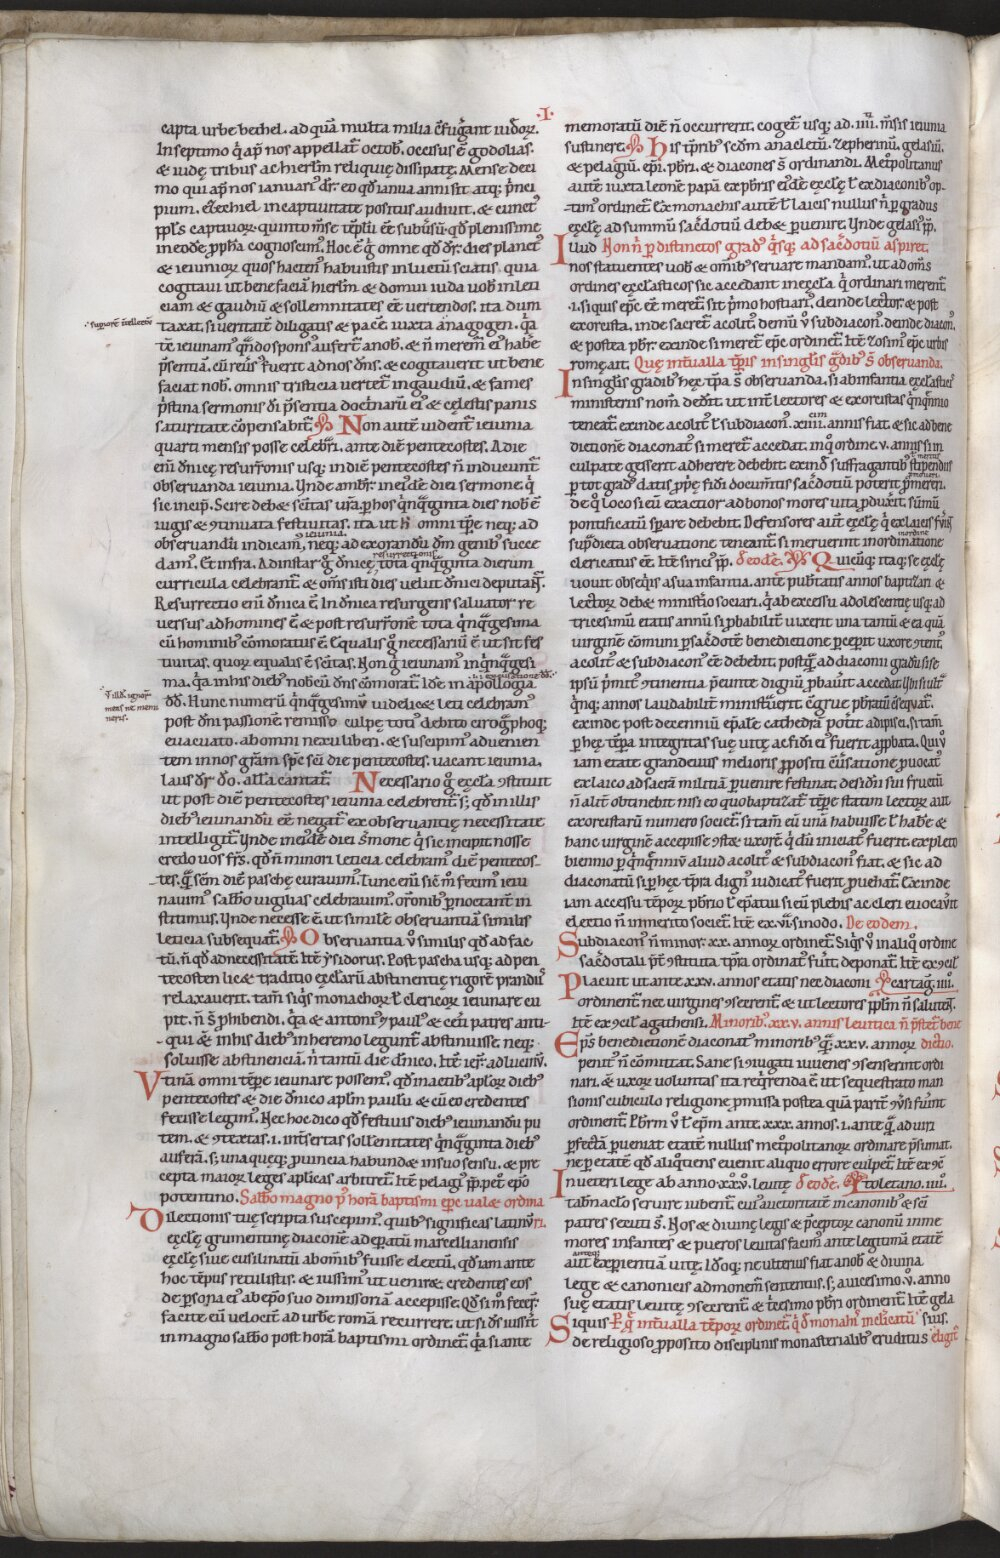 .I.
capta urbe bethel. ad quã multa milia ꝯfugerant iudeoꝝ.
In septimo q̇ ap̃ nos appellat̃ octob̃. occisus ẽ godolias.
& iudę tribus ac hierlm̃ reliquię dissipatę. Mense deci
mo qui ap̃ nos ianuari᷒ dr̃. eo qd̃ ianua anni sit atq; p̃nci
pium. ezechiel in captiuitate positus audiuit. & cunct᷒
ppl̃s captiuoꝝ. quinto mẽse tẽplũ eẽ subũsũ. qd̃ plenissime
in eodẽ ꝓph̃a cognoscim᷒. Hoc ẽ g̊ omne qd̃ dr̃. dies planct᷒
& ieiunioꝝ quos hacten᷒ habuistis in luctũ sciatis. quia
cogitaui ut benefaciã hierlm̃ & domui iuda uob̃ in leti
ciam & gaudiũ & sollemnitates eẽ uertendos. ita dum
taxat. si ueritatẽ diligatis & pacẽ. iuxta anagogen. q̃a
tẽ ieiunam᷒ qñdo spons᷒ aufert᷒ anob̃. & ñ merem᷒ ei᷒ habe
p̃sentiã. cũ reũs᷒ fuerit ad nos dñs. & cogitauerit ut bene
faciat nob̃. omnis tristicia uertet᷒ in gaudiũ. & fames
p̃stina sermonis di p̃sentia doct̃naꝝ ei᷒ & cęlestis panis
saturitate cõpensabit᷒. Non autẽ uident᷒ ieiunia
quarti mensis posse celebr̃i. ante diẽ pentecostes. A die
eni dñicę resurr̃onis usq; in diẽ pentecostes ñ inducunt᷒
obseruanda ieiunia. Unde ambr̃. in eiusdẽ diei sermone. q̇
sic incip̃. Scire debe& sc̃itas ur̃a. ꝑ hos q̃nq̃ginta dies nob̃ ẽ
iugis & ꝯtinuata festiuitas. ita ut h omni tp̃e neq; ad
ieiunia
obseruandũ indicam᷒, neq; ad exorandũ dm̃ genib᷒ succe
resurrectionis
dam᷒. Et infra. Ad instar g̊ dñicę tota q̃nq̃ginta dierum
curricula celebrant᷒ & om̃s isti dies uelut dñici deputant᷒.
Resurrectio eni dñica ẽ. In dñica resurgens saluator re
uersus ad homines ẽ. & post resurr̃onẽ tota q̃nq̃gesima
cũ hominib᷒ cõmoratus ẽ. Equalis g̊ necessariũ ẽ ut sit fes
tiuitas. quoꝝ equalis ẽ sc̃itas. Non g̊ ieiunam᷒ in q̃nq̃gesi
ma. q̃a in his dieb᷒ nobcũ dñs cõmorat᷒. Idẽ in apollogia
dd̃. Hunc numerũ q̃nq̃gesimũ uidelic& leti celebram᷒
post dñi passionẽ remisso culpę toti᷒ debito cirogphoq;
euacuato. ab omni nexu liberi. & suscipim᷒ aduenien
tem in nos gr̃am sp̃c sc̃i die pentecostes. uacant ieiunia.
laus dr̃ do. all̃a cantat᷒. Necessario g̊ ęcl̃a ꝯstituit
ut post diẽ pentecostes ieiunia celebrent᷒. s; qd̃ in illis
dieb᷒ ieiunandũ eẽ negat᷒ ex obseruantię necessitate
intelligit᷒. Unde in eiusdẽ diei s̃mone q̇ sic incipit. nosse
credo uos fr̃s. qd̃ ñ minori leticia celebram᷒ diẽ pentecos
tes. q̃ sc̃m diẽ paschę curauim᷒. Tunc eni sic m̊ fecim᷒ ieiu
nauim᷒ sabb̃o uigilias celebrauim᷒. or̃onib᷒ ꝑnoctant̃ in
stitimus. Unde necesse ẽ ut similẽ obseruantiã similis
leticia subsequat᷒. Obseruantia ů similis qd̃ ad fac
tũ. ñ qd̃ ad necessitatẽ. Itẽ ysidorus. Post pascha usq; ad pen
tecosten lic& traditio ęcl̃iarũ abstinentię rigorẽ prandiis᷒
relaxauerit. tam̃ siq̇s monachoꝝ l̃ clericoꝝ ieiunare cu
pit. ñ s̃ ꝓhibendi. q̃a & antoni᷒ & paul᷒ & cet̃i patres anti-
qui & in his dieb᷒ in heremo legunt᷒ abstinuisse. neq;
soluisse abstinenciã. ñ tantũ die dñico. Itẽ ier̃. ad lucinũ.
Utinã omni tẽpe ieiunare possem᷒. qd̃ in actib᷒ aplõꝝ dieb᷒
pentecostes & die dñico aplm̃ paulũ & cũ eo credentes
fecisse legim᷒. Nec hoc dico qd̃ festiuis dieb᷒ ieiunandũ pu
tem. & ꝯtextas .i. int̃sertas sollẽnitates q̃nq̃ginta dieb᷒
auferã. s; unaqueq; ꝓuincia habundet in suo sensu. & pre
cepta maioꝝ leges aplicas arbitret᷒. Itẽ pelagi᷒ pp̃ pet᷒ ep̃o
potentino. Sabb̃o magno p᷒ horã baptismi ep̃c ualet ordina
Dilectionis tuę scripta suscepim᷒. quib᷒ significas latinũ ri.
ęcl̃ę grumentinę diaconẽ ad ep̃atũ marcellianensis
ęcl̃ę siue cusilinatũ ab omib᷒ fuisse electũ. qd̃ iam ante
hoc tẽpus retulistis. & iussim᷒ ut uenir& credentes eos
de ꝑsona ei᷒ ab ep̃o suo dimissoriã accepisse. Qd̃ si m̊ fecer̃.
facite eũ uelocit̃ ad urbẽ romã recurrere. ut si ds̃ iusit
in magno sabb̃o post horã baptismi ordinet᷒. q̃a si ante
memoratũ diẽ ñ occurrerit. coget᷒ usq; ad .iiii. m̃sis ieiunia
sustinere. His tp̃rib᷒ scdm̃ anacletũ. Zepherinũ. gelasiũ.
& pelagiũ. ep̃i. pbr̃i. & diacones s̃ ordinandi. Met̃politanus
autẽ iuxta leonẽ papã ex pbr̃is ei᷒dẽ ęcl̃ę l̃ ex diaconib᷒ op-
tim᷒ ordinet᷒. Ex monachis autẽ l̃ laicis nullus ñ ꝑ gradus
ęcl̃ę ad summũ sac̃dotiũ debe& ꝑuenire. Unde gelasi᷒ pp̃.
Illud Non ñ ꝑ distinctos grad᷒ q̇sq; ad sac̃dotiũ aspiret.
nos statuentes uob̃ & om̃ib᷒ seruare mandam᷒. ut ad om̃s
ordines ęcl̃asticos sic accedant in ęcl̃a q̇ ordinari merent᷒
.i. siquis ep̃c eẽ meret᷒ sit p̃mo hostiari᷒. deinde lector. & post
exorcista. inde sacret᷒ acolit᷒. demũ ů subdiacon᷒. deinde diacon᷒.
& postea pbr̃. exinde si meret᷒ ep̃c ordinet᷒. Itẽ Zosim᷒ ep̃c urbis
romę ait. Quę int̃ualla tp̃ris in singl̃is g̃dib᷒ s̃ obseruanda.
In singl̃is gradib᷒ hęc tp̃a s̃ obseruanda. si ab infantia ęcl̃astici᷒
ministeriis nom̃ dederit. ut int̃ lectores & exorcistas q̃nq̃nnio
teneat᷒. exinde acolit᷒ l̃ subdiacon᷒. xiiii. annis fiat. & sic ad bene
dictionẽ diaconat᷒ si meret᷒ accedat. in q̊ ordine. v. annis si in
culpate gesserit adherere debebit. exinde suffragantib᷒ stipendiis
ꝑ tot grad᷒ datis ꝓprię fidi documtis sac̃dotiũ poterit ꝓmereri.
de q̊ loco si eũ exactior ad honos mores uita ꝑduxit. sũmũ
pontificatũ sperare debebit. Defensores aut̃ ęcl̃ę q̇ ex laicis fiunt
sup̃dicta obseruatione teneant᷒. si meruerint in ordinatione
clericatus eẽ. Itẽ sirici᷒ pp̃. Deodẽ. Quicũq; itaq; se ęcl̃ę
uouit obseq̃iis a sua infantia. ante pub̃tatis annos baptizari &
lectoꝝ debe& minist̃io sociari. q̇ ab excessu adolescentię usq; ad
tricesimũ etatis annũ si ꝓbabilit᷒ uixerit una tantũ & ea quã
uirginẽ cõmuni ꝑ sac̃dotẽ benedictione ꝑcepit uxore ꝯtent᷒.
acolit᷒ & subdiacon᷒ eẽ debebit. postq̃ ad diaconii gradũ si se
ipsũ p̃mit᷒ ꝯtinentia p̃eunte dignũ ꝓbauit accedat. Ubi si ult̃
q̃nq; annos laudabilit᷒ ministrauerit ꝯgrue pbr̃atũ ꝯseq̃t᷒.
exinde post decenniũ ep̃ale cathedrã poterit adipisci. si tam̃
ꝑ hęc tẽpora integritas suę uitę ac fidei ei᷒ fuerit approbata. Qui ů
iam etate grandeuus melioris ꝓpositi ꝯũsatione ꝓuocat᷒
ex laico ad sacrã militiã ꝑuenire festinat. desiderii sui fructũ
ñ alit̃ obtinebit nisi eo quo baptizat᷒ tẽpe statim lectoꝝ aut
exorcistarũ numero societ᷒. si tam̃ eũ unã habuisse l̃ habe&
hanc uirginẽ accepisse ꝯstet uxorẽ. q̇ dũ iniciat᷒ fuerit. expleto
biennio ꝑ q̃nq̃nniũ aliud acolit᷒ & subdiacon᷒ fiat. & sic ad
diaconatũ si ꝑ hęc tẽpora dign᷒ iudicat᷒ fuerit ꝓuehat᷒. Exinde
iam accessu tẽpoꝝ pbr̃io l̃ ep̃atui si eũ plebis ac cleri euocauit
electio ñ inmerito societ᷒. Itẽ ex .vi. sinodo. De eodem.
Subdiacon᷒ ñ minor᷒ .xx. annoꝝ ordinet᷒. Siq̇s ů in aliq̊ ordine
sac̃dotali p̃t̃ ꝯstituta tp̃ra ordinat᷒ fuit᷒. deponat᷒. Itẽ ex ꝯcil᷒
Placuit ut ante .xxv. annos etatis nec diaconi cartag᷒. iiii.
ordinent᷒. nec uirgines ꝯsecrent᷒. & ut lectores pplm̃ ñ salutẽt.
Itẽ ex ꝯcil᷒ agathensi. Minorib᷒ .xx.v. annis leuitica ñ p̃stet᷒ bene
Ep̃s benedictionẽ diaconat᷒ minorib᷒ q̃ .xxv. annoꝝ dictio.
penit᷒ ñ cõmittat. Sane si ꝯiugati iuuenes ꝯsenserint ordi
nari. & uxoꝝ uoluntas ita req̇renda ẽ ut sequestrato man
sionis cubiculo religione ꝓmissa postea quã parit̃ ꝯũsi fuerint
ordinent᷒. Pbr̃m ů l̃ ep̃m ante .xxx. annos .i. ante q̃ ad uiri
ꝑfectã ꝑueniat etatẽ nullus met̃politanoꝝ ordinare p̃sumat.
ne ꝑ etatẽ qd̃ aliquotiens euenit aliquo errore culpent᷒. Itẽ ex ꝯc̃
In ueteri lege ab anno .xx.v. leuitę deodẽ. toletano .iiii.
tabnac̃lo seruire iubent᷒. cui᷒ auctoritatẽ in canonib᷒ & sc̃i
patres secuti s̃. Nos & diuinę legis & p̃ceptoꝝ canonũ inme
mores infantes & pueros leuitas facim᷒ ante legitimã etatẽ
aut exꝑientiã uitę. Ido q; ne ulterius fiat anob̃ & diuina
lege & canonicis admonem᷒ sententiis. s; a uicesimo .v. anno
suę etatis leuitę ꝯsecrent᷒. & t̃cesimo pbr̃i ordinent᷒. Itẽ gela
Siquis P q̃ int̃ualla tẽpoꝝ ordinet᷒. q̇ d̃ monah᷒ in cl̃icatũ sius.
de religioso ꝓposito disciplinis monasterialib᷒ eruditus eligit᷒